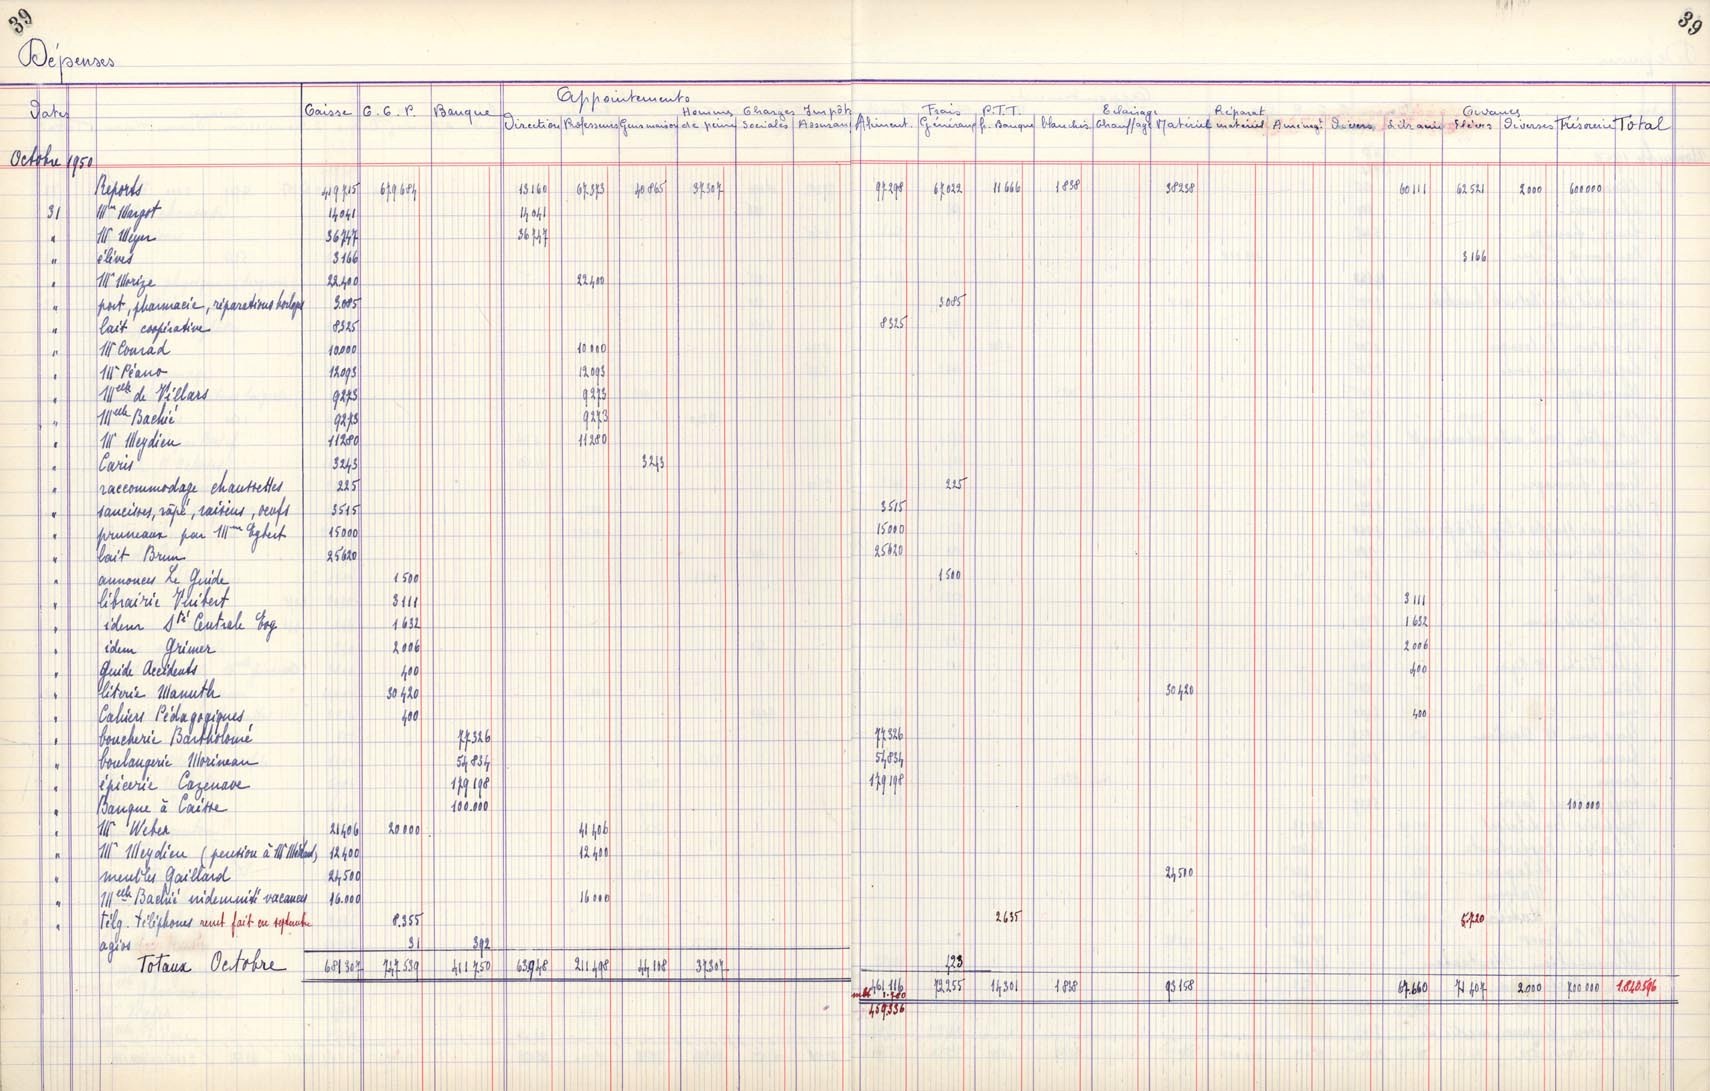 39 39
Dépenses
Appointements
Dates Caisse C.C.P. Banque Direction Professeurs Gens maison Hommes de peine Charges Sociales Impôts Assuran Aliment. Frais Généraux P.T.T. fr. Banque blanchis. Eclairage Chauffage Matériel Réparat matériel Aménagt Divers Librairie Elèves Diverses Trésorerie Total
Octobre 1950
Reports 419715 679684 13160 67373 40865 37307 97298 67022 11666 1838 38238 60111 62521 2000 600000
31 Mme Margot 14041 14041
" Mr Meyer 36747 36747
" élèves 3166 3166
" Mr Morize 22400 22400
" port, pharmacie, réparations horloges 3.085 3085
" lait coopérative 8325 8325
" Mr Conrad 10000 10000
" Mr Péano 12093 12093
" Melle de Villars 9273 9273
" Melle Bachié 9273 9273
" Mr Meydieu 11280 11280
" Caris 3243 3243
" raccommodage chaussettes 225 225
" saucisses, râpé, raisins, oeufs 3515 3515
" pruneaux par Mme Egbert 15000 15000
" lait Brun 25620 25620
" annonces Le Guide 1500 1500
" librairie Vuibert 3111 3111
" idem Sté Centrale 1632 1632
" idem Grimer 2006 2006
" Guide Accidents 400 400
" literie Manuth 30420 30420
" Cahiers Pédagogiques 400 400
" boucherie Bartholomé 77326 77326
" boulangerie Morineau 54834 54834
" épicerie Cazenave 179198 179198
" Banque à Caisse 100.000 100000
" Mr Weber 21406 20.000 41406
" Mr Meydieu (pension à Mr 12400 12400
" meubles Gaillard 24500 24500
" Melle Bachié indemnité vacances 16.000 16000
" télg. téléphones remt fait en septembre 8.355 2635 5.720
agios 31 392 423
Totaux Octobre 681307 747.539 411750 63948 211498 44108 37307
461116 72255 14301 1.838 93158 67.660 71407 2.000 700000 1.840.596
1.780
459.336